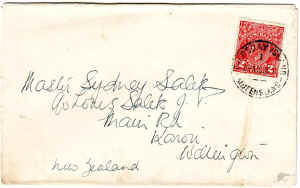 Master Sydney Salek
c/o Louis Salek
Main Rd.
Karori
Wellington
New Zealand
QUEENSLAND